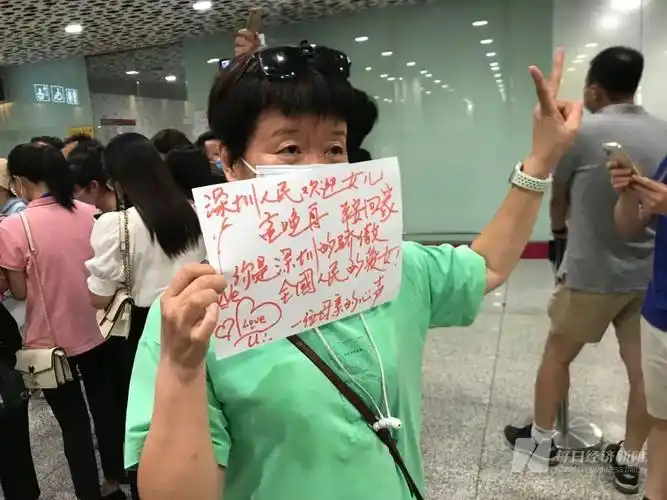 深圳人民欢迎女儿
孟晚舟 平安回家
你是深圳的骄傲
全国人民的爱女!
I Love
U!
一位母亲的心声
每日经济新闻